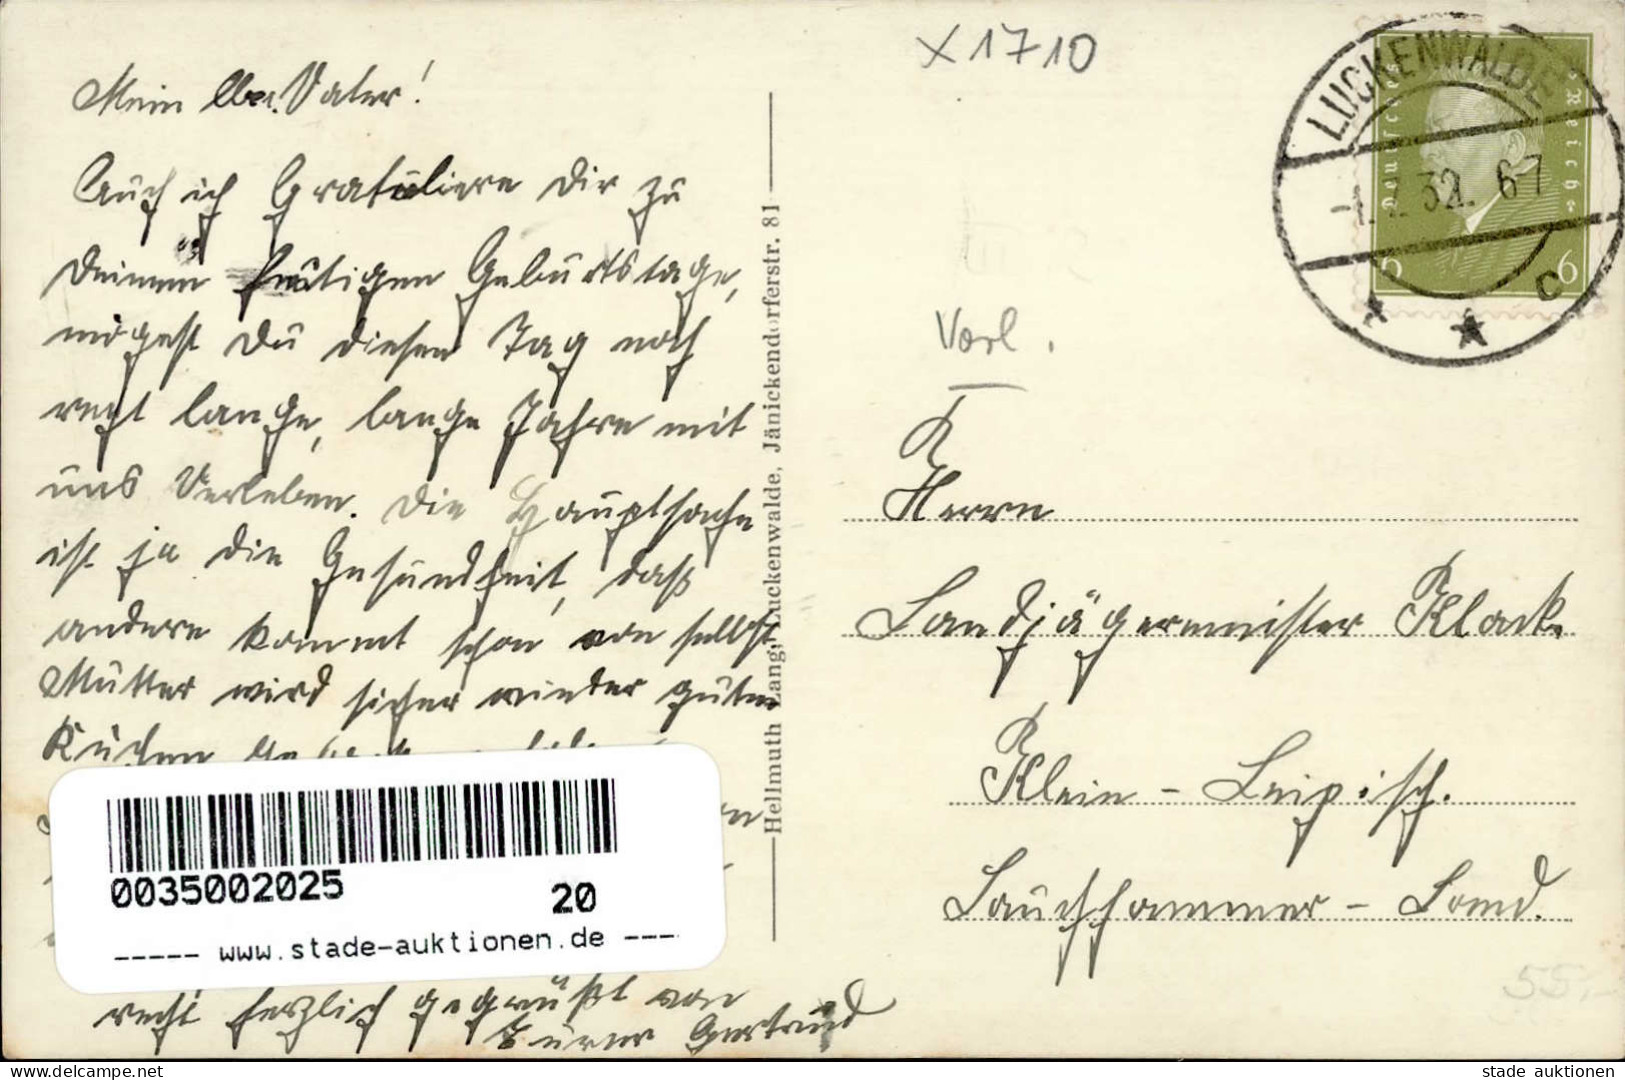 Mein lber. Vater!
Auch ich Gratuliere Dir zu
Deinem heutigen Geburtstage,
mögest Du diesen Tag noch
recht lange, lange Jahre mit
uns Verleben. Die Hauptsache
ist ja die Gesundheit, daß
andere kommt schon von selbst,
Mutter wird sicher wieder guten
Kuchen
recht herzlich gegrüßt von
Eurer Gertrud
Hellmuth Lange, Luckenwalde, Jänickendorferstr. 81
X 1710
LUCKENWALDE
32. 6-7
* * C
Deutsches Reich
6 6
Vorl.
Herrn
Landjägermeister Klack
Klein - Leipisch.
Lauchhammer - Land.
55,-
0035002025
20
----- www.stade-auktionen.de ----
www.delcampe.net
stade auktionen